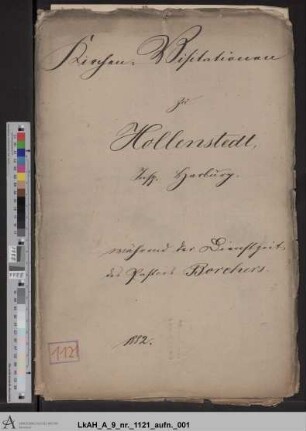 Kirchen-Visitationen
zu
Hollenstedt,
Insp. Harburg.
während der Dienstzeit
des Pastors Borchers.
1852.
1121
LkAH_A_9_nr._1121_aufn._001